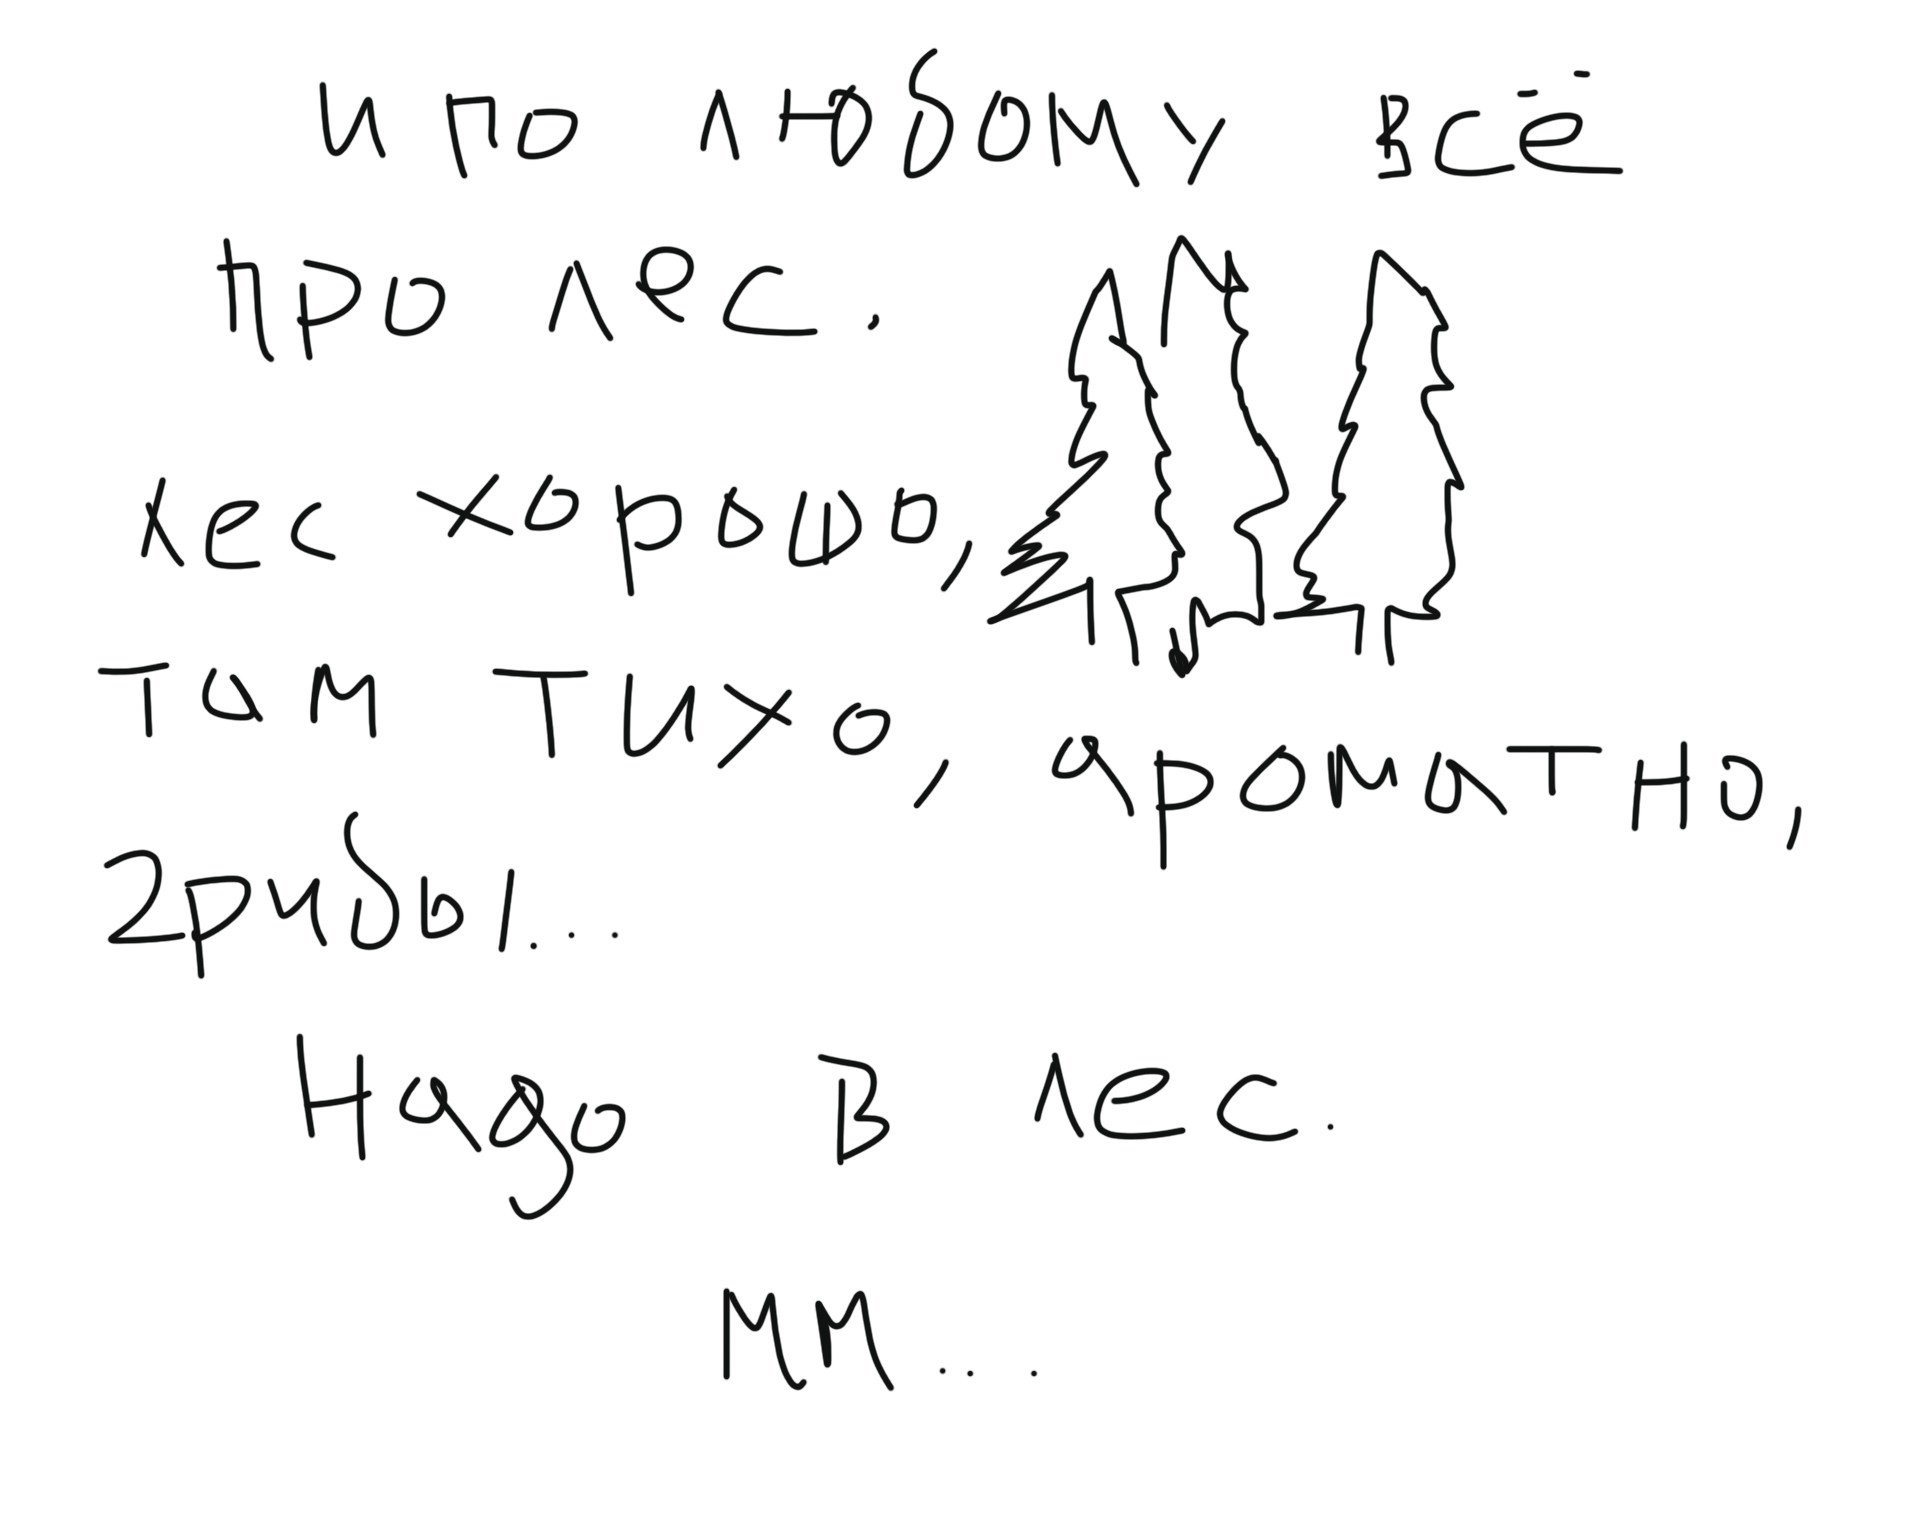 и по любому всё
про лес.
лес хорошо,
там тихо, ароматно,
грибы...
Надо в лес.
мм....